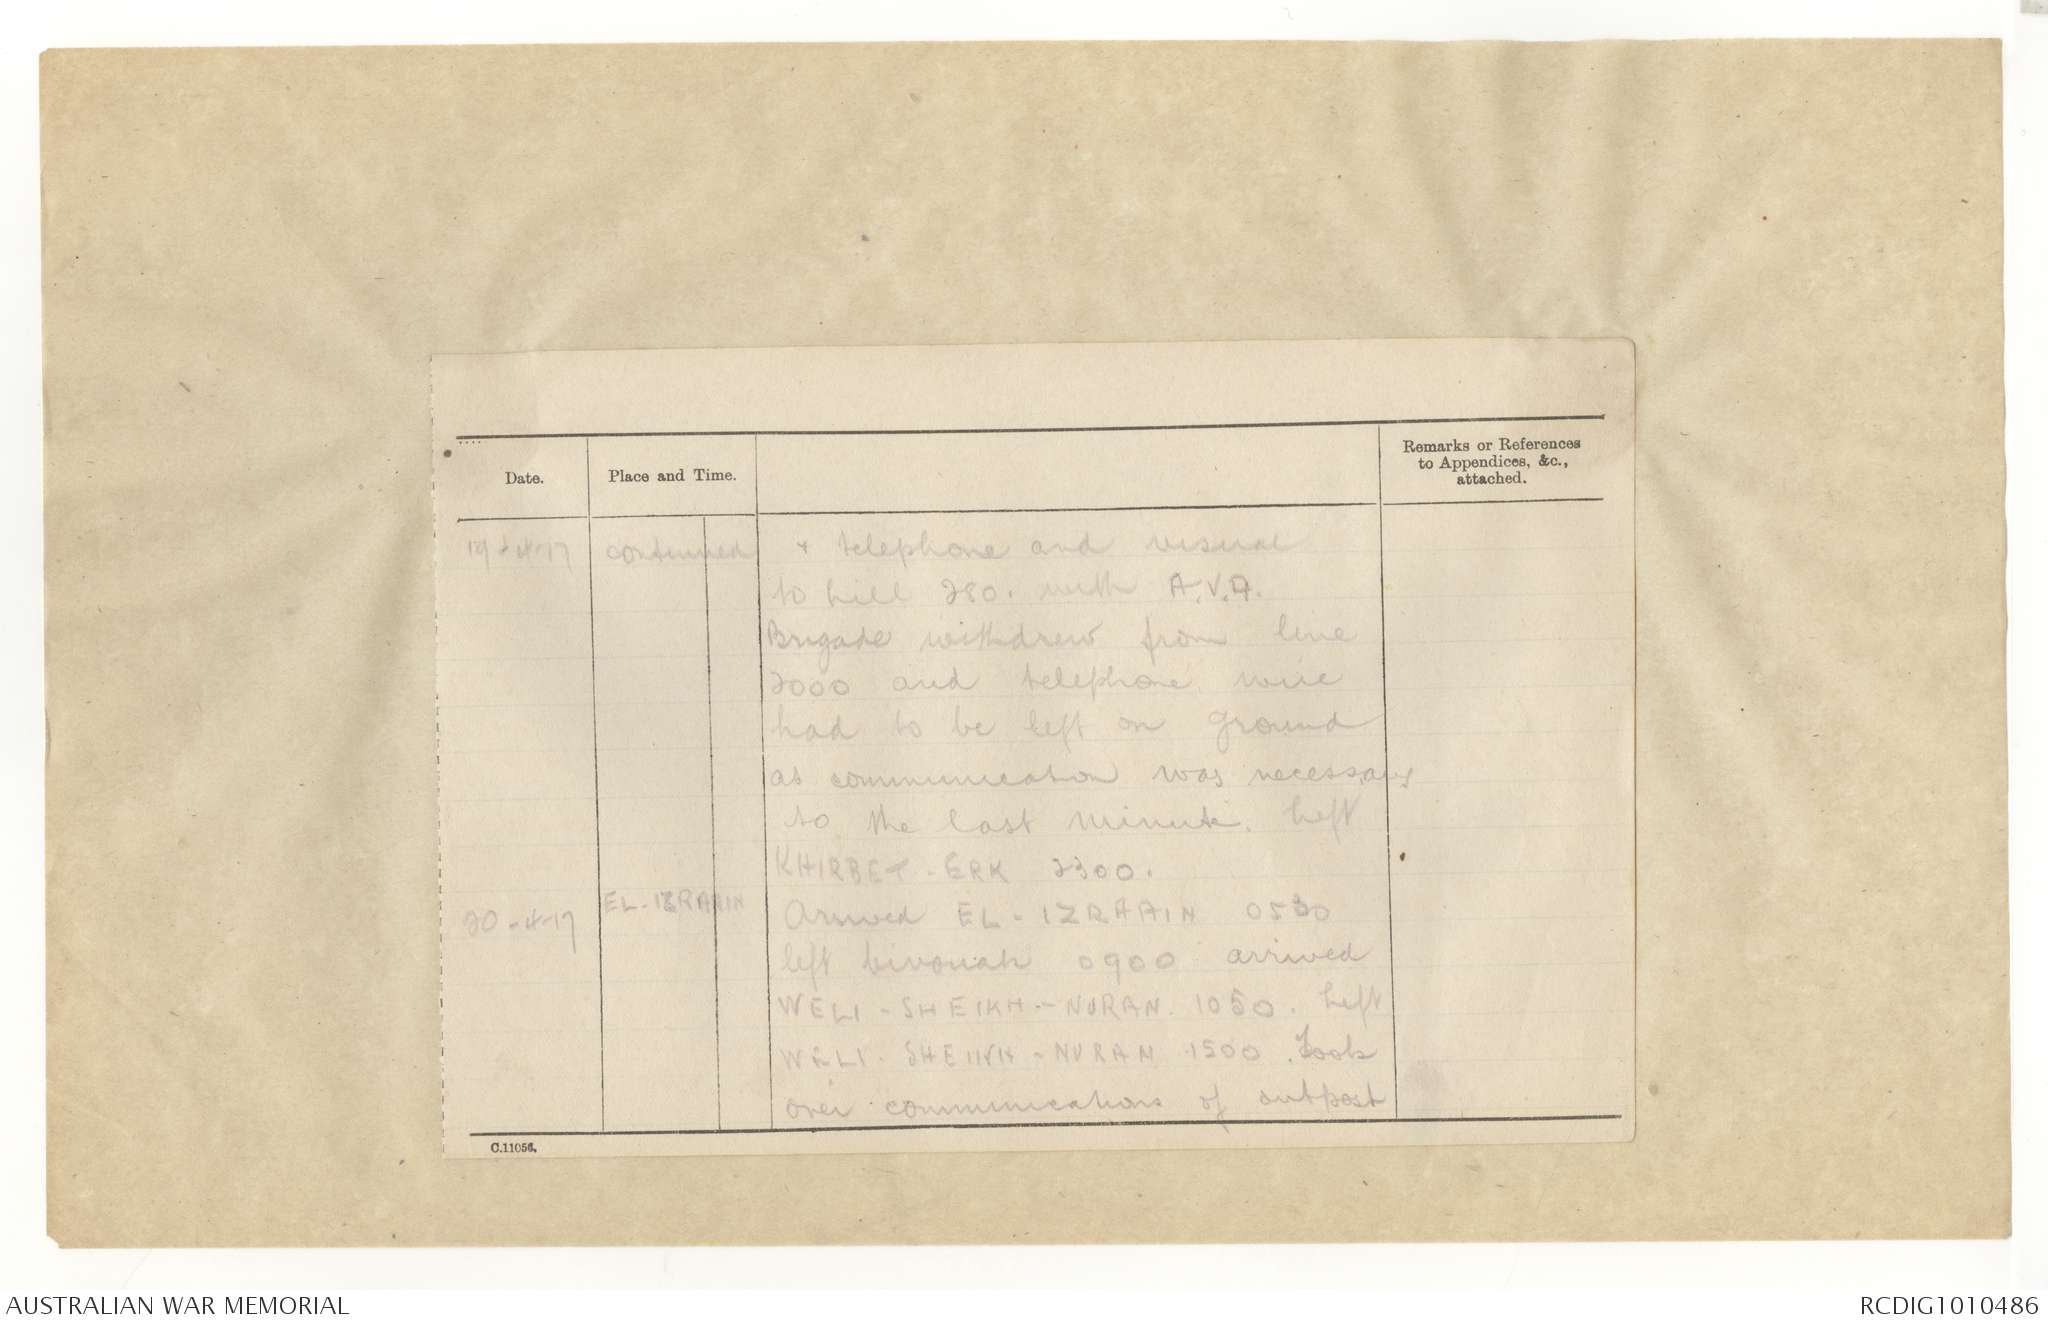 Date.
Place and Time.
Remarks or References
to Appendices, &c.,
attached.
19-4-17 continued + telephone and visual
to hill 280. with A.V.A.
Brigade withdrew from line
2000 and telephone wire
had to be left on ground
as communication was necessary
to the last minute. Left
KHIRBET-ERK 2300.
20-4-17 EL-IZRAAIN Arrived EL-IZRAAIN 0530
left bivouah 0900 arrived
WELI-SHEIKH-NURAN. 1050. Left
WELI-SHEIKH-NURAN 1500. Took
over communications of outpost
C.11056.
AUSTRALIAN WAR MEMORIAL
RCDIG1010486